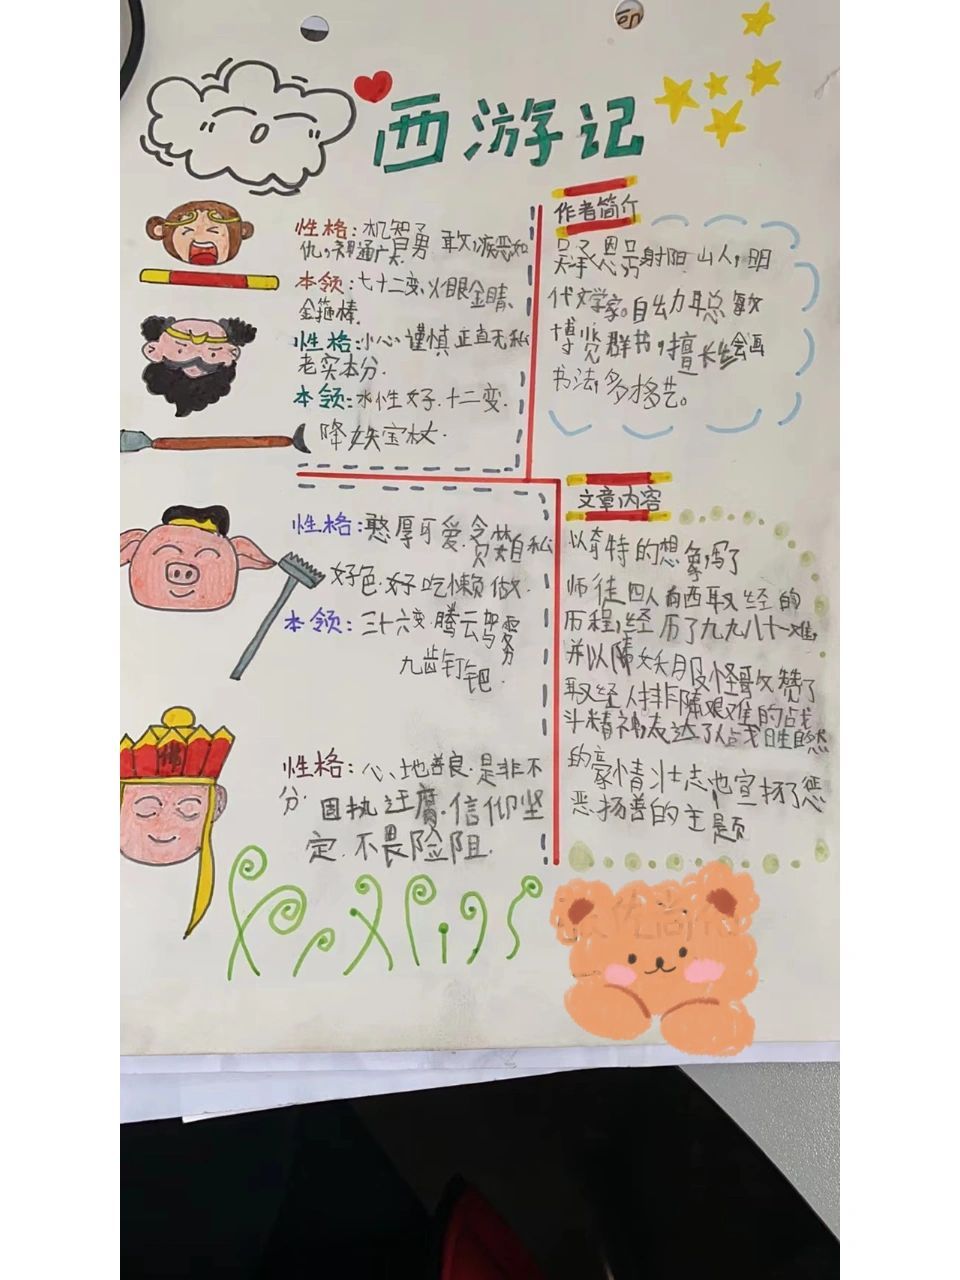 西游记
性格:机智
仇,神通广大
本领:七十二变、火眼金睛、
金箍棒.
性格:小心谨慎正直无私
老实本分.
本领:水性好.十二变.
降妖宝杖.
性格:憨厚可爱.贪婪自私
好色.好吃懒做.
本领:三十六变.腾云驾雾
九齿钉钯.
性格:心地善良.是非不
分.固执迂腐.信仰坚
定.不畏险阻.
作者简介
吴承恩号射阳山人,明
代文学家。自幼聪敏
博览群书,擅长绘画
书法,多才多艺。
文章内容
以奇特的想象,写了
师徒四人西取经的
历程,经历了九九八十一难,
并以降妖服怪歌赞了
取经人排除艰难的战
斗精神,表达了人战胜自然
的豪情壮志也宣扬了惩
恶扬善的主题